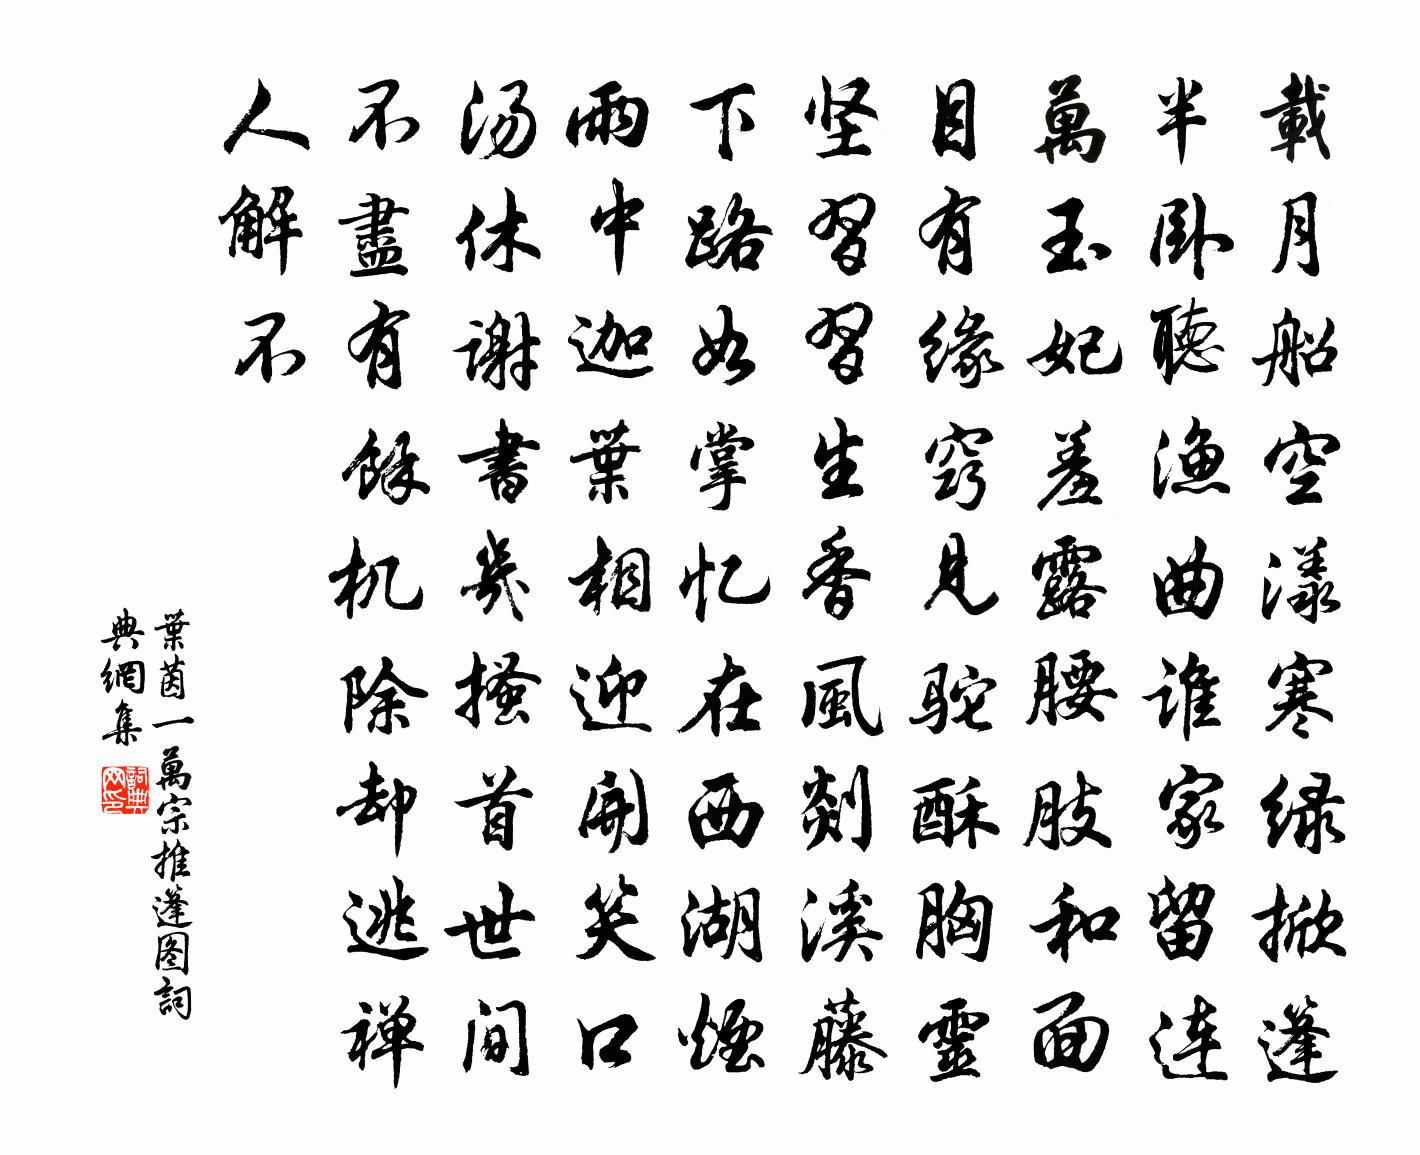 載月船空漾寒绿掀篷
半卧聽漁曲誰家留連
萬玉妃羞露腰肢和面
目有缘窍見駝酥胸靈
坚習習生香風剡溪藤
下路如掌忆在西湖煙
雨中迦葉相迎開笑口
汤休谢書幾搔首世间
不盡有餘机除却逃禅
人解不
葉茵一萬宗推蓬图詞
典網集
詞典
网印